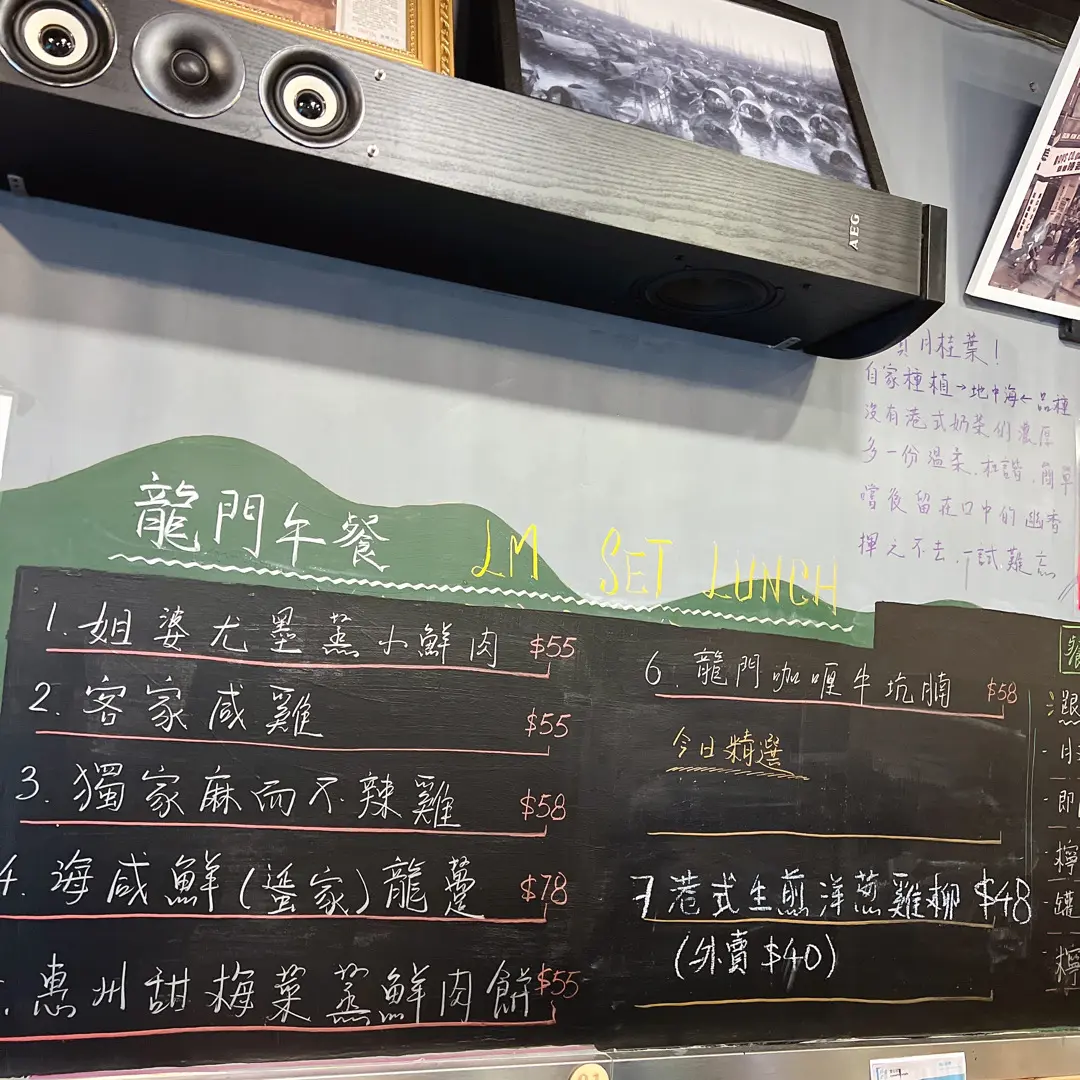 AEG
月桂葉！
自家種植→地中海←品種
沒有港式奶茶的濃厚
多一份溫柔.和諧.簡單
嚐後留在口中的幽香
揮之不去.一試.難忘
龍門午餐 LM SET LUNCH
1. 姐婆尤墨蒸小鮮肉 $55
2. 客家咸雞 $55
3. 獨家麻而不辣雞 $58
4. 海咸鮮(蜑家)龍躉 $78
惠州甜梅菜蒸鮮肉餅 $55
6. 龍門咖喱牛坑腩 $58
今日精選
7 港式生煎洋葱雞柳 $48
(外賣 $40)
跟
月
即
檸
罐
檸